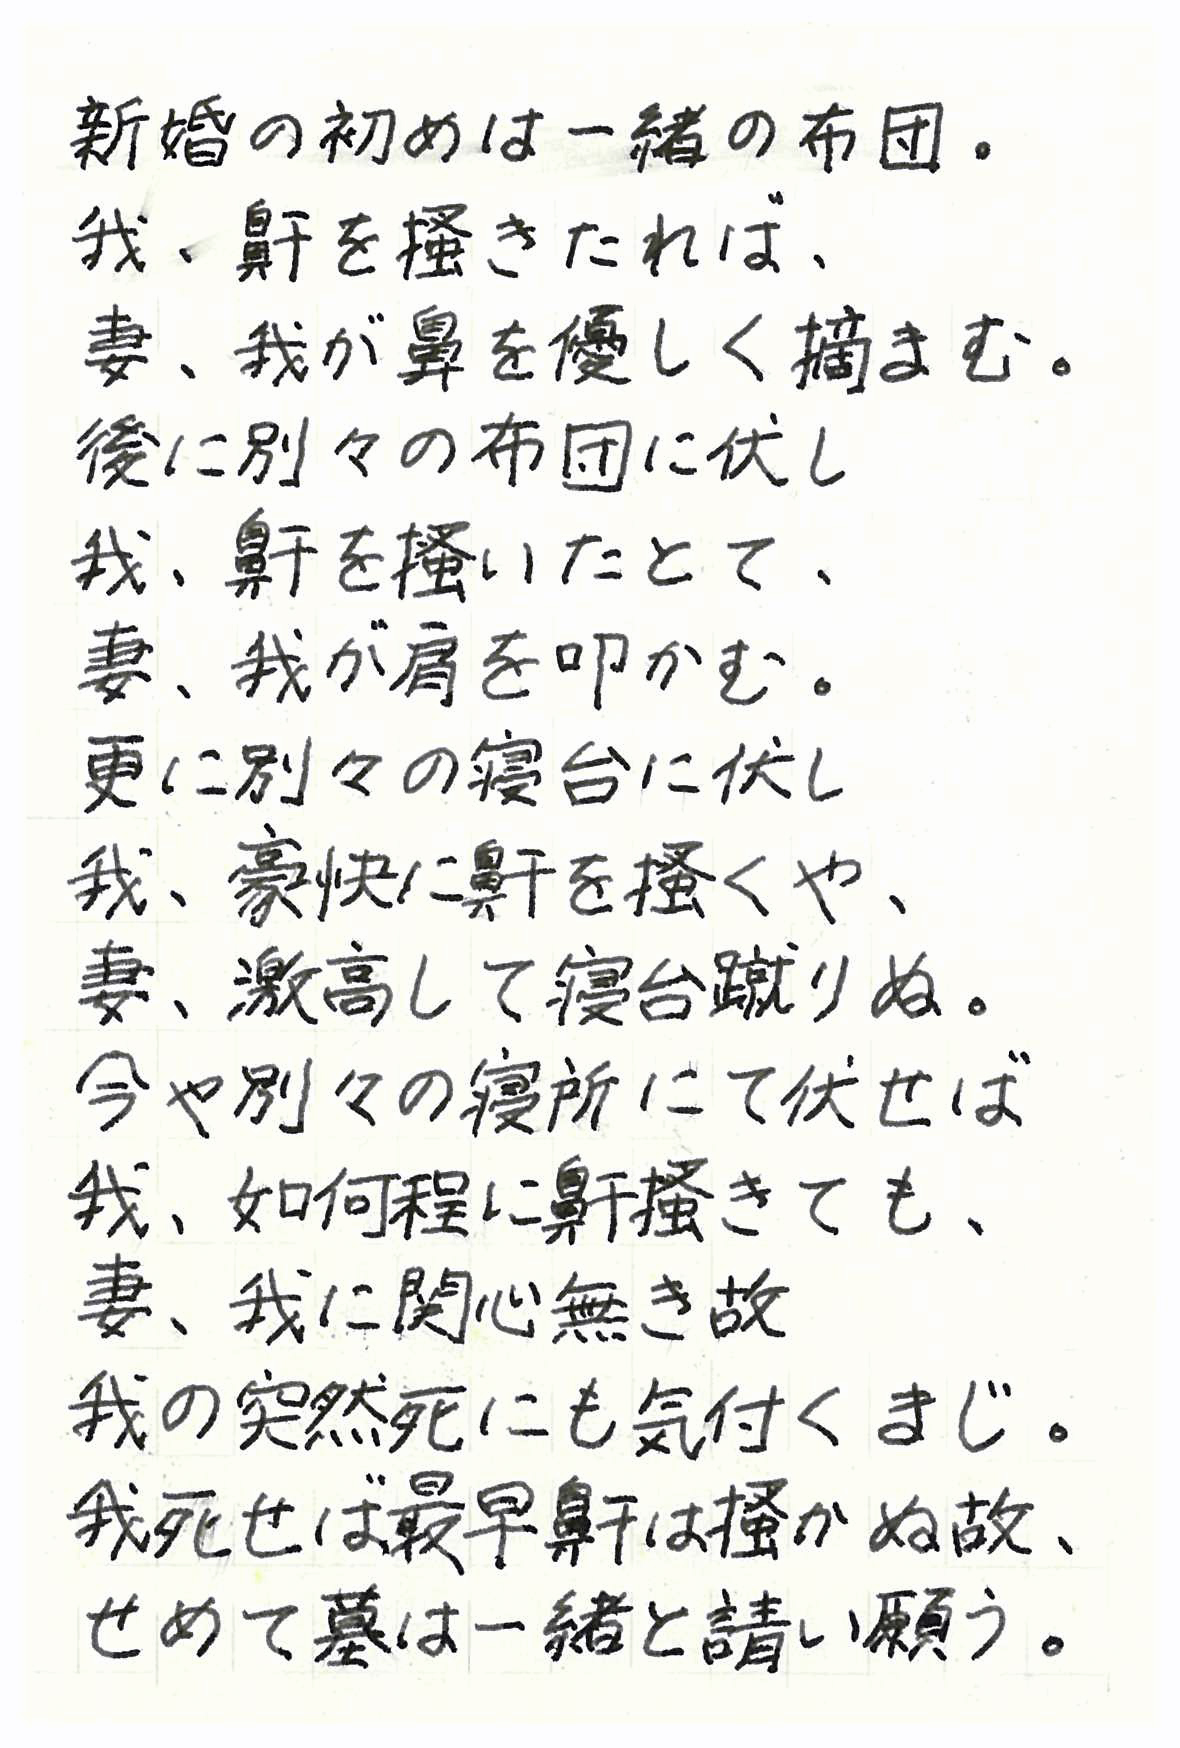 新婚の初めは一緒の布団。
我、鼾を掻きたれば、
妻、我が鼻を優しく摘まむ。
後に別々の布団に伏し
我、鼾を掻いたとて、
妻、我が肩を叩かむ。
更に別々の寝台に伏し
我、豪快に鼾を掻くや、
妻、激高して寝台蹴りぬ。
今や別々の寝所にて伏せば
我、如何程に鼾掻きても、
妻、我に関心無き故
我の突然死にも気付くまじ。
我死せば最早鼾は掻かぬ故、
せめて墓は一緒と請い願う。